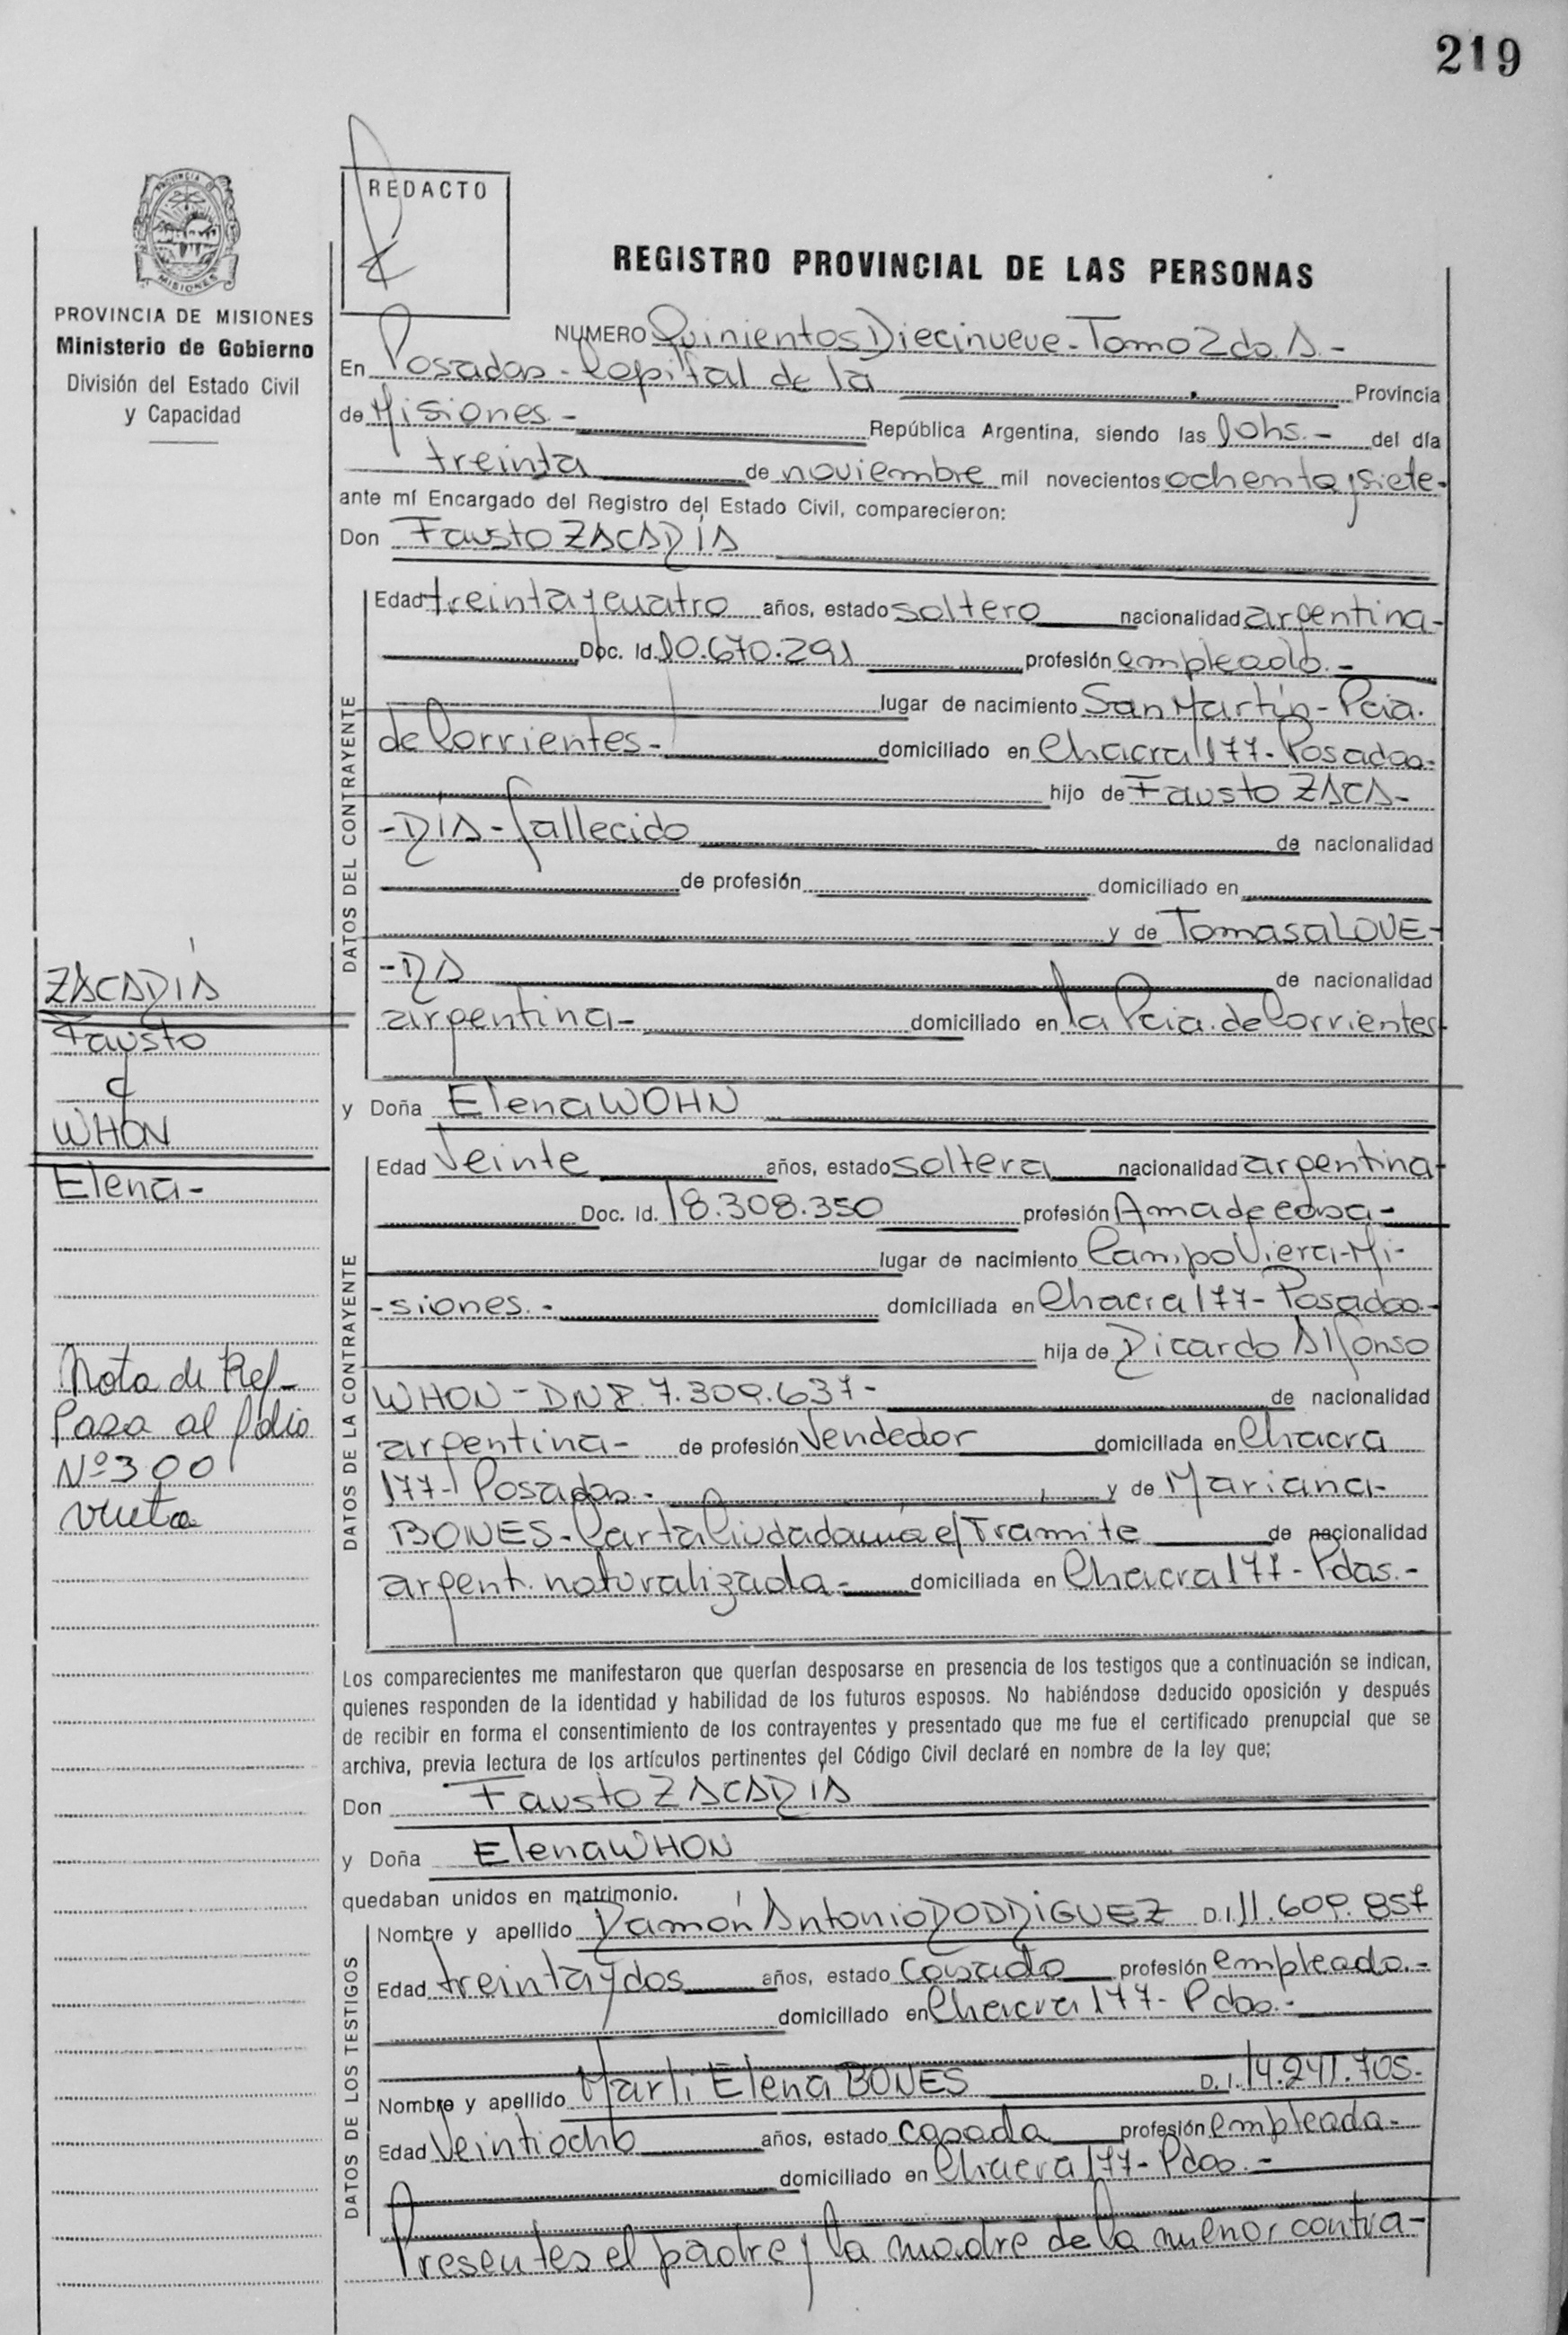 219
REDACTO
PROVINCIA DE
MISIONES
REGISTRO PROVINCIAL DE LAS PERSONAS
PROVINCIA DE MISIONES
Ministerio de Gobierno
División del Estado Civil
y Capacidad
NUMERO Quinientos Diecinueve - Tomo 2do A.-
En Posadas - Capital de la Provincia
de Misiones - República Argentina, siendo las 10hs.- del día
treinta de noviembre mil novecientos ochenta y siete-
ante mí Encargado del Registro del Estado Civil, comparecieron:
Don Fausto ZACARÍA
DATOS DEL CONTRAYENTE
Edad treinta y cuatro años, estado soltero nacionalidad argentina-
Doc. Id. 10.670.291 profesión empleado.-
lugar de nacimiento San Martín - Pcia.
de Corrientes- domiciliado en Chacra 177- Posadas-
hijo de Fausto ZACA-
-RÍA - fallecido de nacionalidad
de profesión domiciliado en
y de Tomasa LOVE-
-RA de nacionalidad
argentina- domiciliado en la Pcia. de Corrientes-
ZACARÍA
Fausto
c/
WHON
Elena-
y Doña Elena WOHN
DATOS DE LA CONTRAYENTE
Edad Veinte años, estado soltera nacionalidad argentina-
Doc. Id. 18.308.350 profesión Ama de casa-
lugar de nacimiento Campo Viera-Mi-
-siones.- domiciliada en Chacra 177- Posadas.-
hija de Ricardo Alfonso
WHON - DNI 7.309.637- de nacionalidad
argentina- de profesión Vendedor domiciliada en Chacra
177- Posadas.- y de Mariana
BONES- Carta Ciudadanía e/Tramite de nacionalidad
argent. naturalizada- domiciliada en Chacra 177- Pdas.-
Nota de Ref-
Pasa al folio
Nº 300
vuelta
Los comparecientes me manifestaron que querían desposarse en presencia de los testigos que a continuación se indican,
quienes responden de la identidad y habilidad de los futuros esposos. No habiéndose deducido oposición y después
de recibir en forma el consentimiento de los contrayentes y presentado que me fue el certificado prenupcial que se
archiva, previa lectura de los artículos pertinentes del Código Civil declaré en nombre de la ley que;
Don Fausto ZACARÍA
y Doña Elena WHON
quedaban unidos en matrimonio.
DATOS DE LOS TESTIGOS
Nombre y apellido Ramón Antonio RODRIGUEZ D.I. 11.609.857
Edad treinta y dos años, estado casado profesión empleado.-
domiciliado en Chacra 177- Pdas.-
Nombre y apellido Marli Elena BONES D.I. 14.241.705-
Edad Veintiocho años, estado casada profesión empleada-
domiciliado en Chacra 177- Pdas.-
Presentes el padre y la madre de la menor contra-